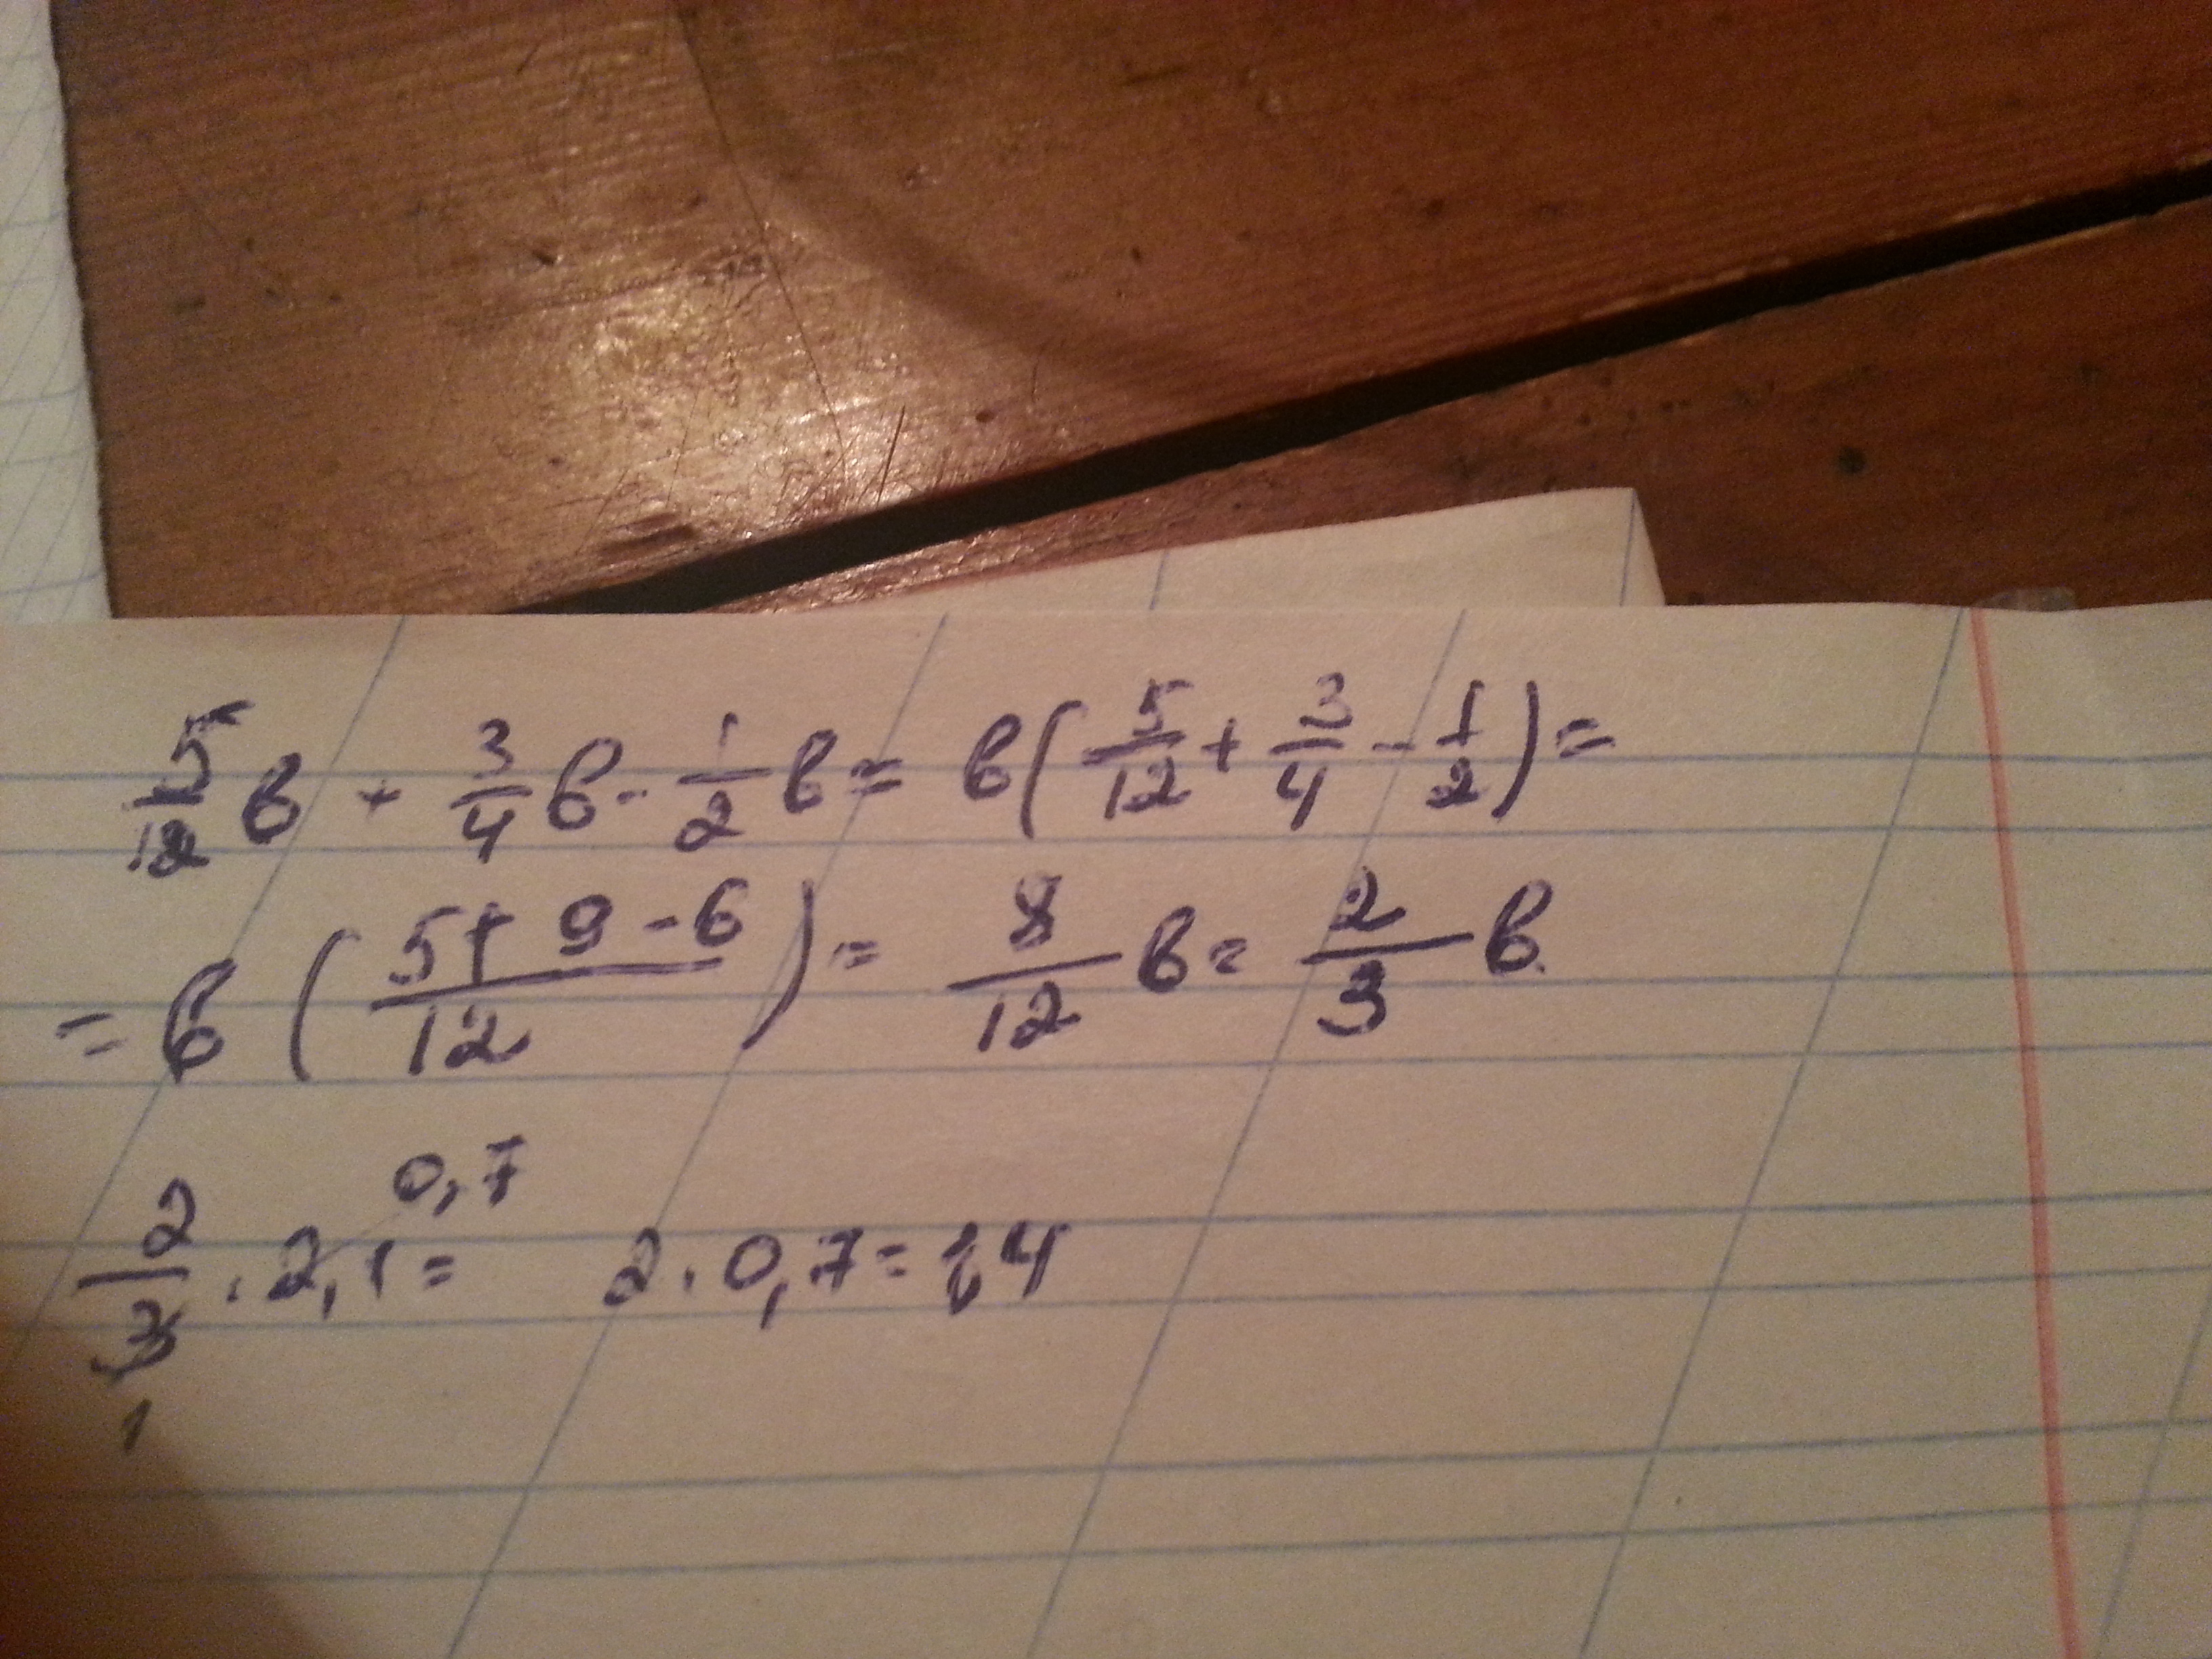 5/12 в + 3/4 в - 1/2 в = в ( 5/12 + 3/4 - 1/2 ) =
= в ( 5+9-6/12 ) = 8/12 в = 2/3 в
0,7
2/3 · 2,1 = 2 · 0,7 = 1,4
1